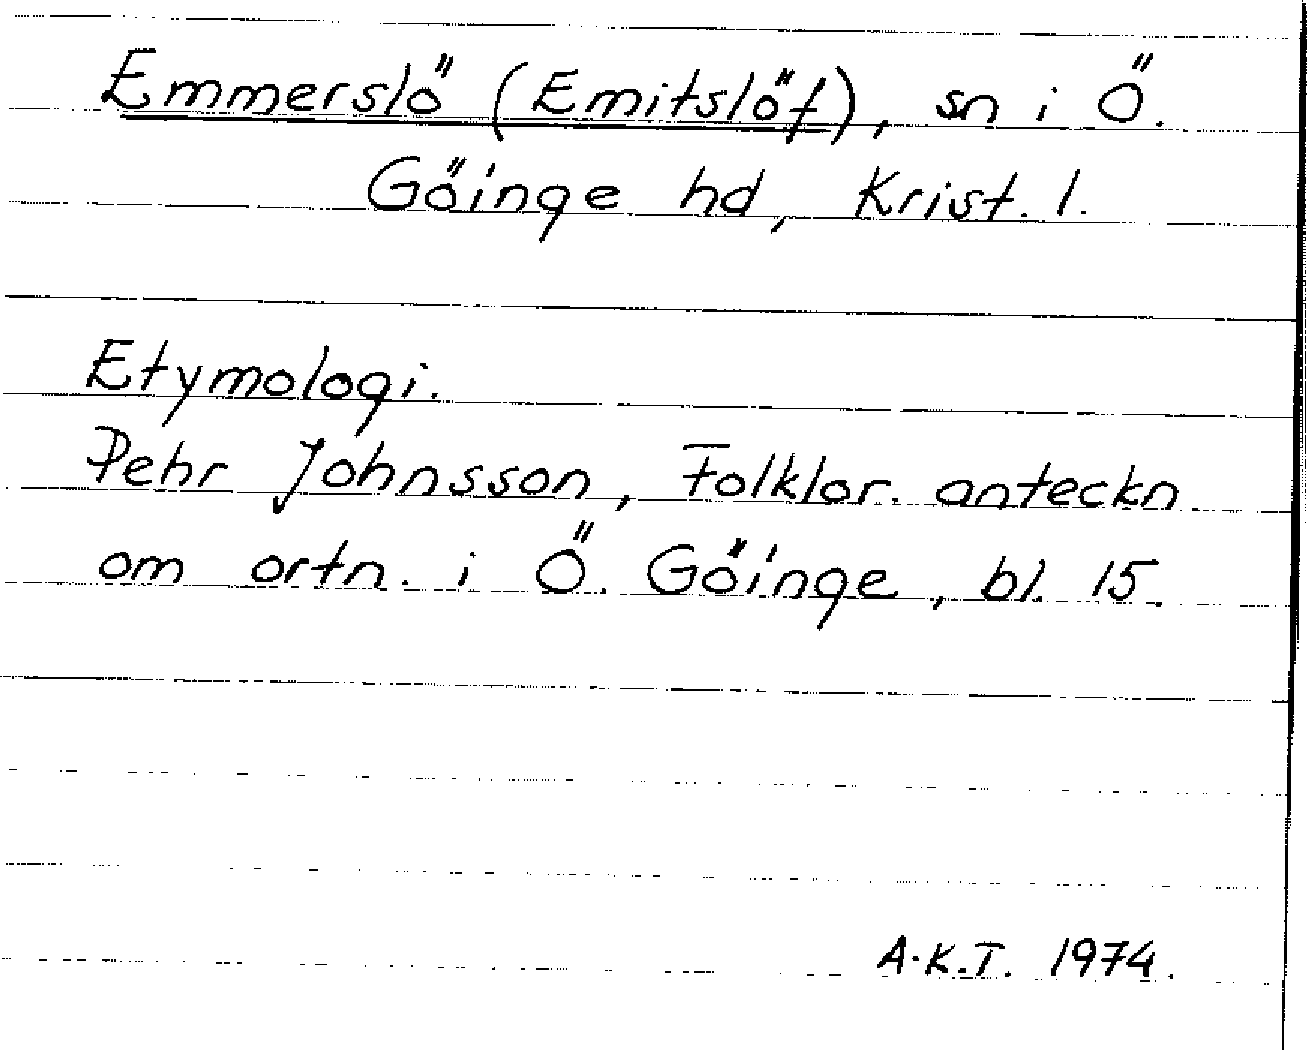 Emmerslö (Emitslöf), sn i Ö.
Göinge hd, Krist. l.
Etymologi.
Pehr Johnsson, Folklor. anteckn
om ortn. i Ö. Göinge, bl. 15.
A.K.T. 1974.